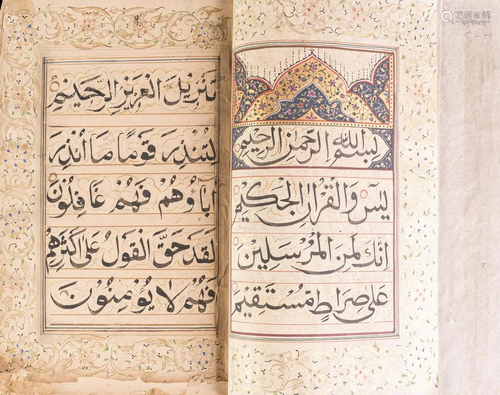 بسم الله الرحمن الرحيم
يس والقرآن الحكيم
انك لمن المرسلين
على صراط مستقيم
تنزيل العزيز الرحيم
لتنذر قوما ما انذر
اباؤهم فهم غافلون
لقد حق القول على اكثرهم
فهم لا يؤمنون